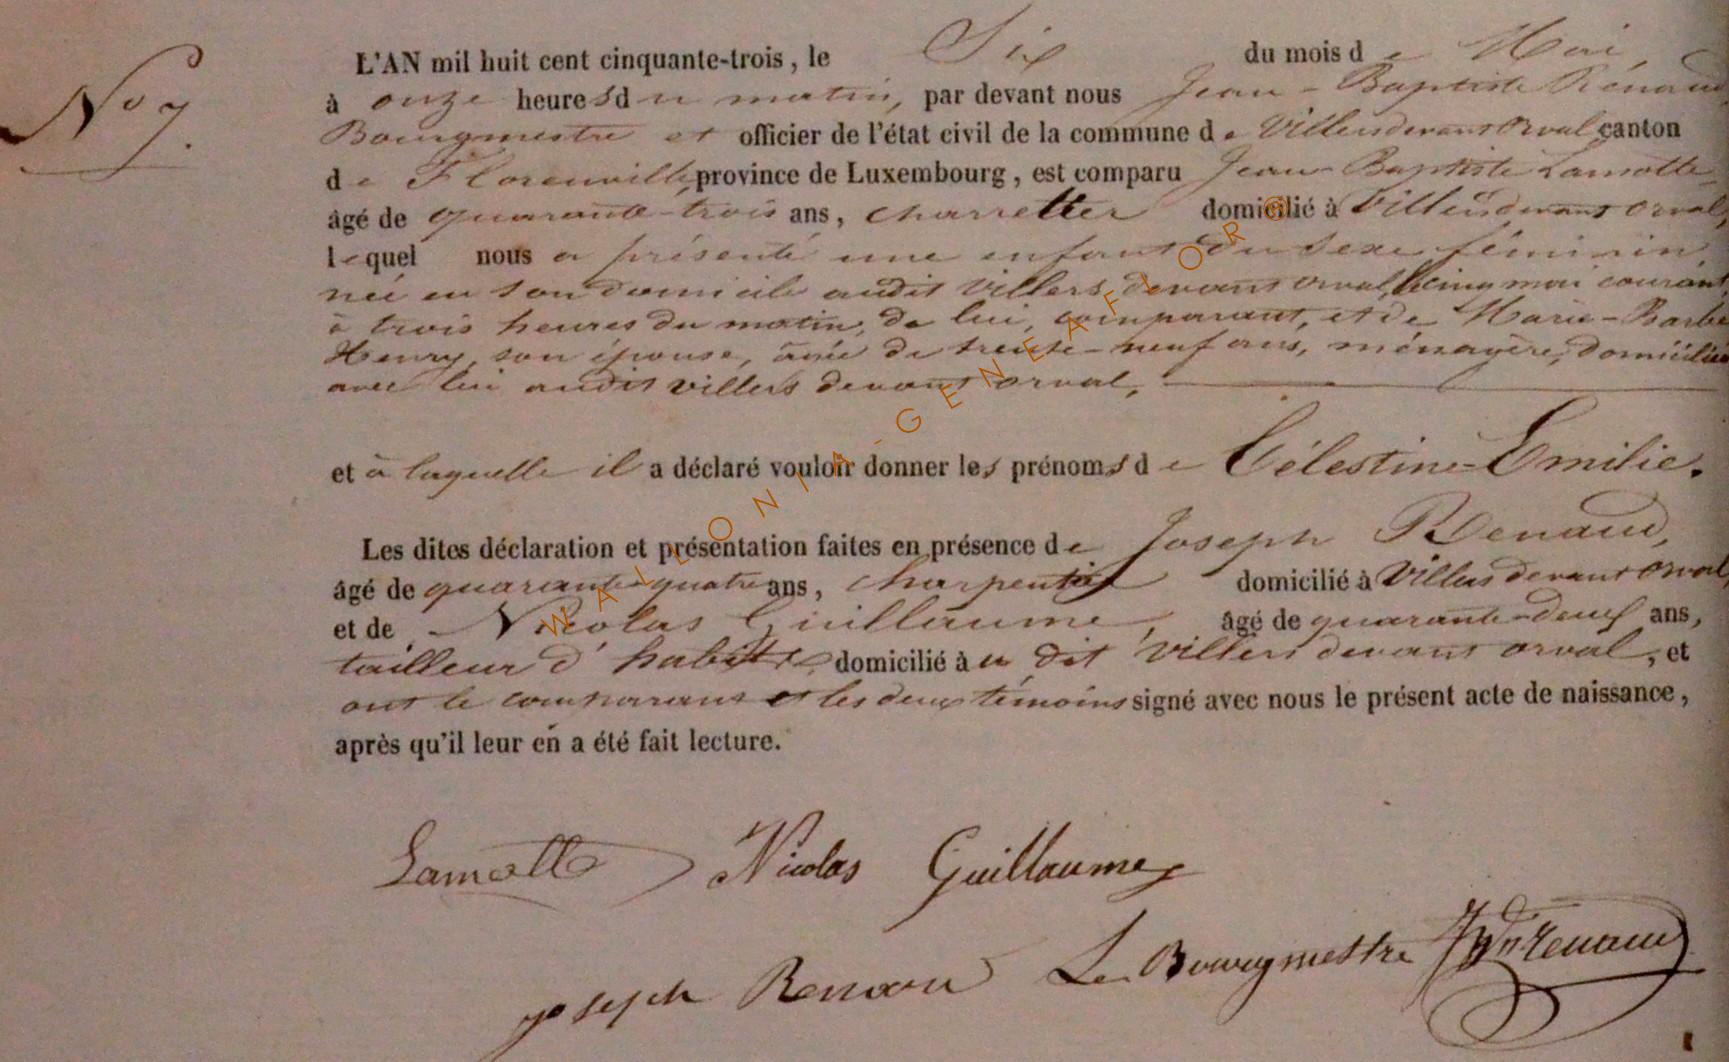 No 7.
L'AN mil huit cent cinquante-trois, le Six du mois de Mai,
à onze heures du matin, par devant nous Jean-Baptiste Rénaud
Bourgmestre et officier de l'état civil de la commune de Villersdevantorval canton
de Florenville, province de Luxembourg, est comparu Jean-Baptiste Lamotte
âgé de quarante-trois ans, charretier domicilié à Villersdevant orval,
lequel nous a présenté une enfant du sexe féminin,
née en son domicile audit Villers devant orval, le cinq mai courant,
à trois heures du matin, de lui, comparant, et de Marie-Barbe
Henry, son épouse, âgée de trente-neuf ans, ménagère, domiciliée
avec lui audit villers devant orval,
et à laquelle il a déclaré vouloir donner les prénoms de Célestine-Emilie.
Les dites déclaration et présentation faites en présence de Joseph Renaud,
âgé de quarante-quatre ans, charpentier domicilié à Villers devant orval
et de Nicolas Guillaume, âgé de quarante-deux ans,
tailleur d'habits, domicilié à u dit Villers devant orval, et
ont le comparant et les deux témoins signé avec nous le présent acte de naissance,
après qu'il leur en a été fait lecture.
Lamotte Nicolas Guillaume
Joseph Renau Le Bourgmestre Renaud
WALLONIA-GENEAFLOR®